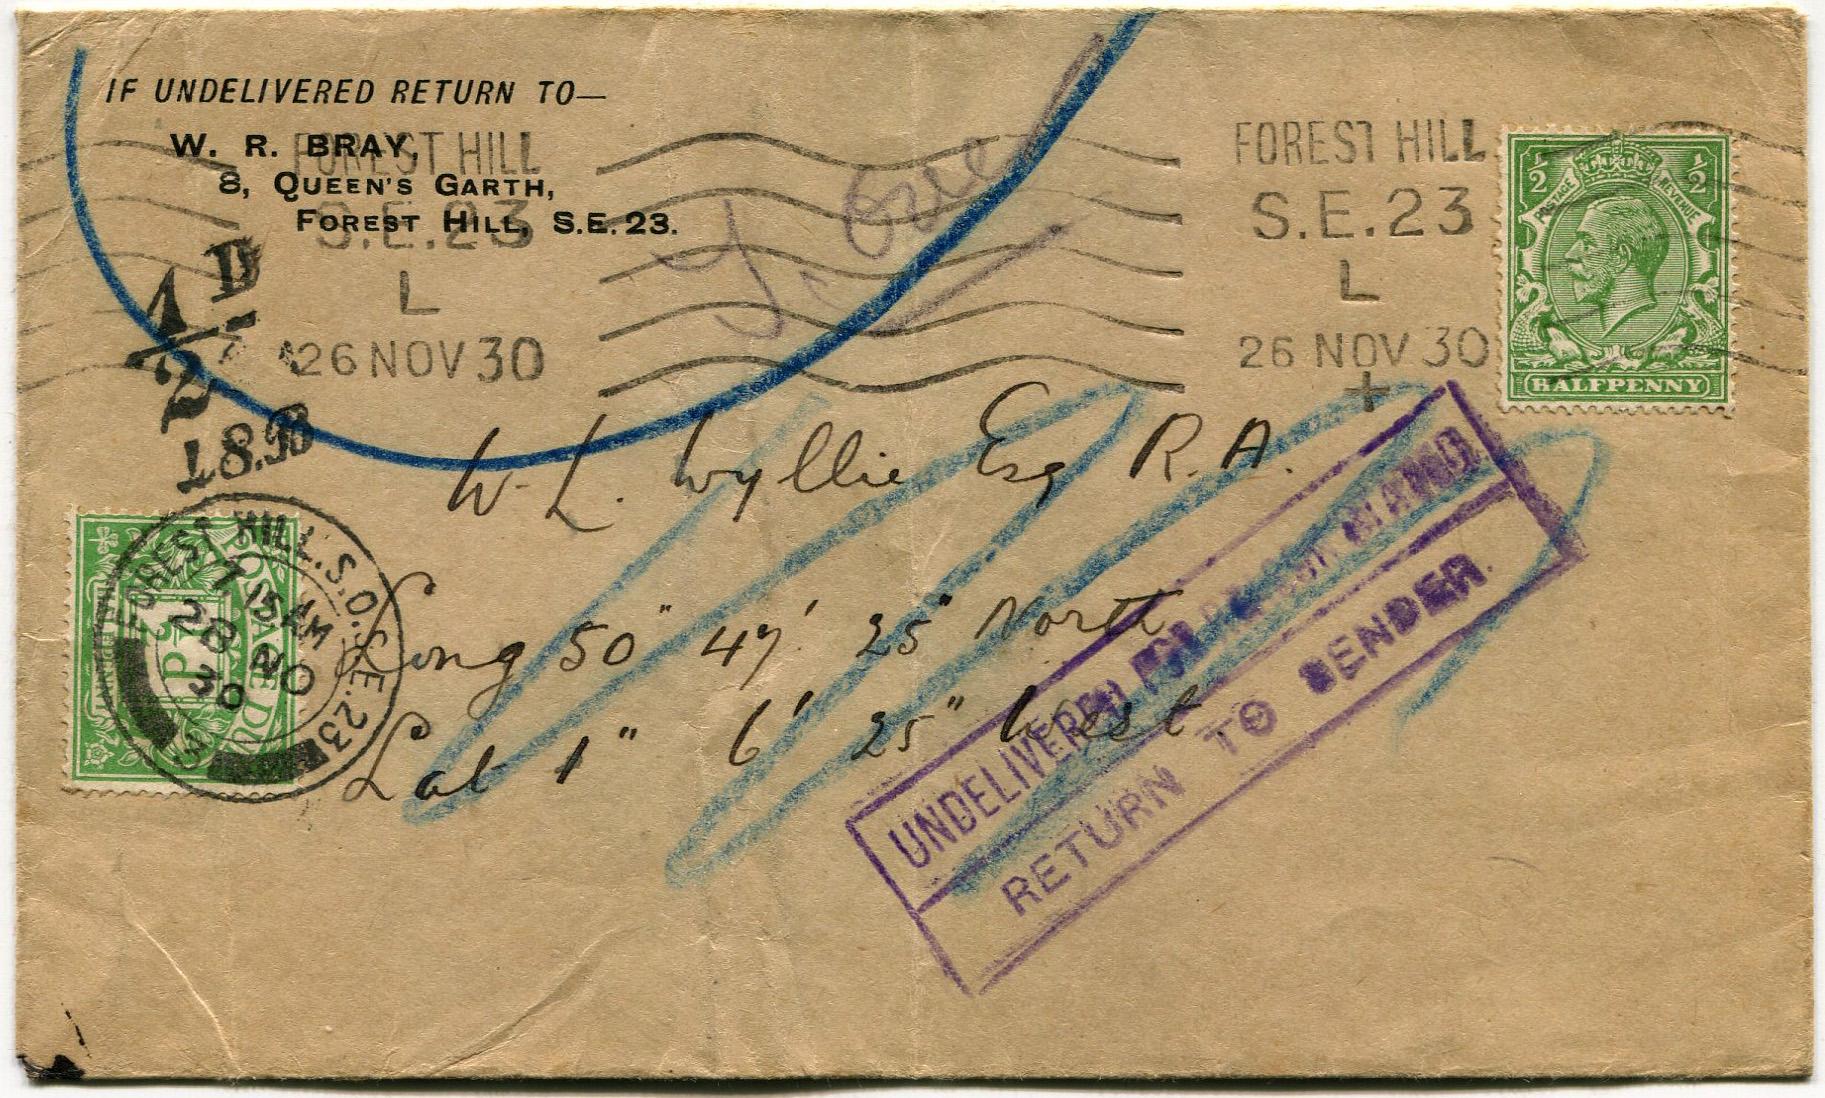 IF UNDELIVERED RETURN TO—
W. R. BRAY,
8, QUEEN'S GARTH,
FOREST HILL, S.E.23.
FOREST HILL
S.E.23
L
26 NOV 30
FOREST HILL
S.E.23
L
26 NOV 30
+
POSTAGE REVENUE
½ ½
HALFPENNY
½D
W. L. Wyllie Esq R. A.
Long 50" 47' 25" North
Lat 1" 6' 25" West.
FOREST HILL. S.O. S.E.23
7 15 AM
28 NO
30
POSTAGE DUE
UNDELIVERED FOR
RETURN TO SENDER.